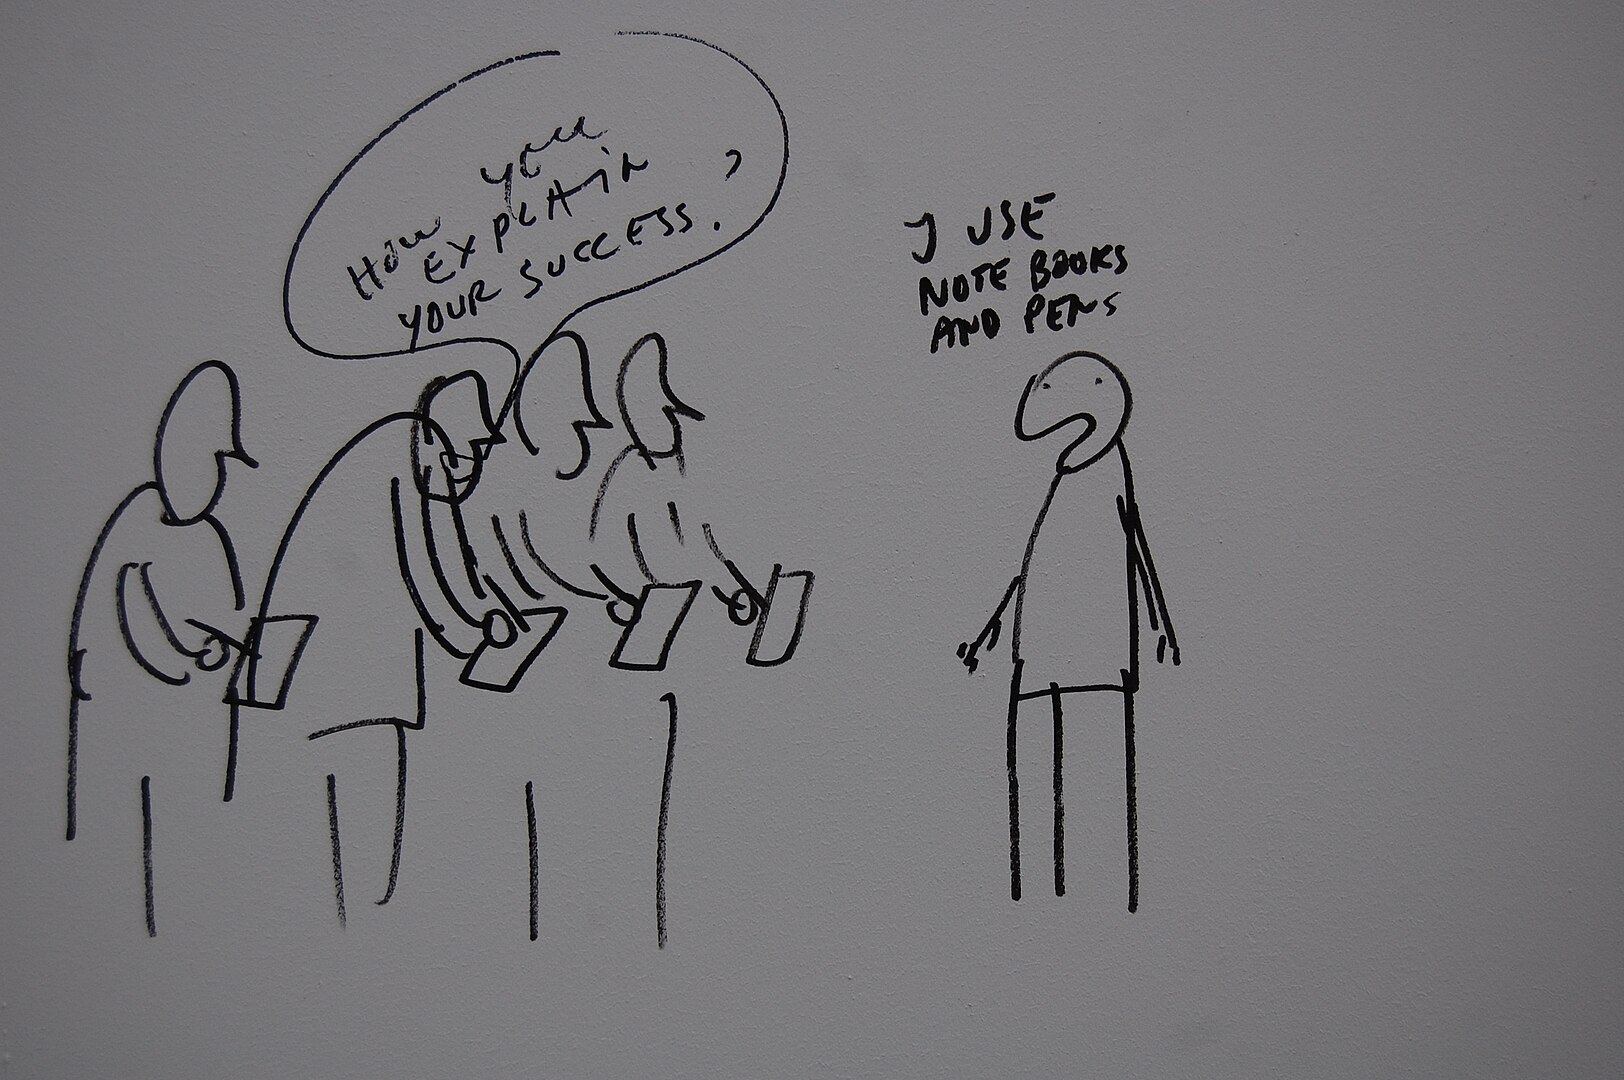 HOW you
EXPLAIN
YOUR SUCCESS. ?
I USE
NOTE BOOKS
AND PENS